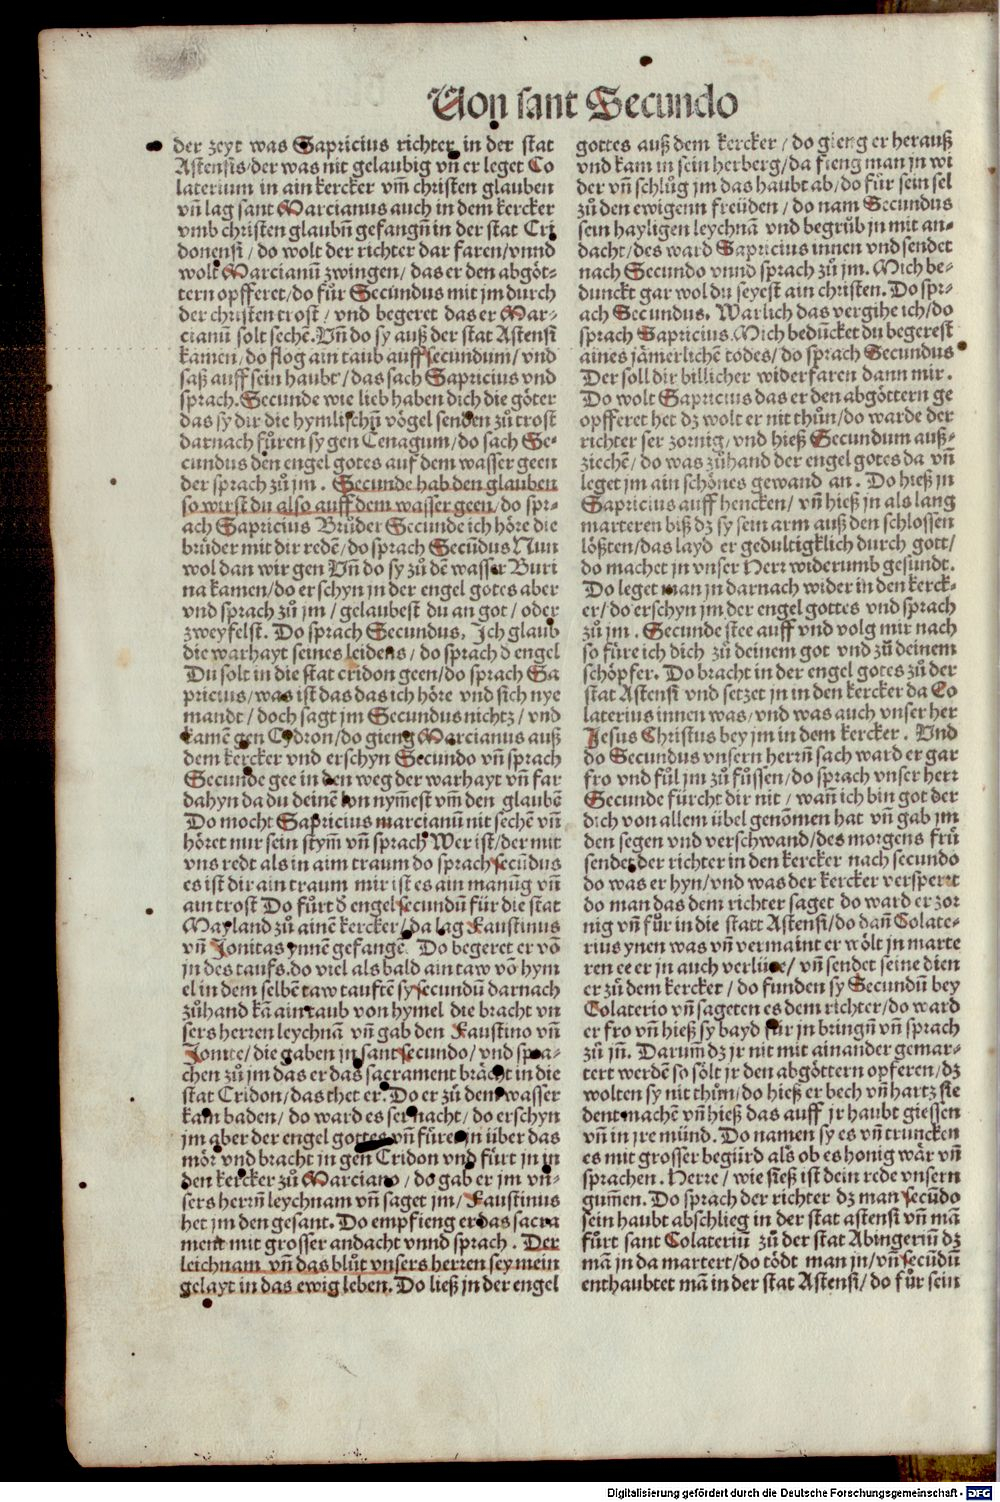 Von sant Secundo
der zeyt was Sapricius richter in der stat
Astensis/der was nit gelaubig vñ er leget Co
laterium in ain kercker vm̃ christen glauben
vñ lag sant Marcianus auch in dem kercker
vmb christen glaubñ gefangñ in der stat Cri
donensi / do wolt der richter dar faren/vnnd
wolt Marcianū zwingen/ das er den abgöt-
tern opfferet/do fůr Secundus mit jm durch
der christen trost / vnd begeret das er Mar-
cianū solt sechē. Vñ do sy auß der stat Astensi
kamen/do flog ain taub auff secundum/vnd
saß auff sein haubt/das sach Sapricius vnd
sprach. Secunde wie lieb haben dich die göter
das sy dir die hymlischñ vögel senden zů trost
darnach fůren sy gen Cenagum/do sach Se-
cundus den engel gotes auf dem wasser geen
der sprach zů jm . Secunde hab den glauben
so wirst du also auff dem wasser geen/do spr-
ach Sapricius Brůder Secunde ich höre die
brüder mit dir redē/do sprach Secūdus Nun
wol dan wir gen Vñ do sy zů dē wasser Buri
na kamen/do erschyn in der engel gotes aber
vnd sprach zů jm / gelaubest du an got / oder
zweyfelst. Do sprach Secundus, Ich glaub
die warhayt seines leidens / do sprach d̄ engel
Du solt in die stat cridon geen/do sprach Sa
pricius/was ist das das ich höre vnd sich nye
mandt / doch sagt jm Secundus nichtz / vnd
kamē gen Cydron/do gieng Marcianus auß
dem kercker vnd erschyn Secundo vñ sprach
Secunde gee in den weg der warhayt vñ far
dahyn da du deinē lon nym̃est vm̃ den glaubē
Do mocht Sapricius marcianū nit sechē vñ
höret nur sein stym̃ vñ sprach Wer ist/der mit
vns redt als in aim traum do sprach secūdus
es ist dir ain traum mir ist es ain manūg vñ
ain trost Do fůrt d̄ engel secundū für die stat
Mayland zů ainē kercker/da lag Faustinus
vñ Jonitas ynnē gefangē. Do begeret er vō
jn des taufs.do viel als bald ain taw vō hym
el in dem selbē taw tauftē sy secundū darnach
zůhand kā ain taub von hymel die bracht vn
sers herren leychnā vñ gab den Faustino vñ
Jonite/die gaben jn sant secundo/vnd spra-
chen zů jm das er das sacrament brächt in die
stat Cridon/das thet er. Do er zů dem wasser
kam baden/ do ward es ser nacht/do erschyn
jm aber der engel gottes vñ füret jn über das
mör vnd bracht jn gen Cridon vnd fůrt jn in
den kercker zů Marciano/do gab er jm vn-
sers herrñ leychnam vñ saget jm/Faustinus
het jm den gesant. Do empfieng er das sacra
ment mit grosser andacht vnnd sprach . Der
leichnam vñ das blůt vnsers herren sey mein
gelayt in das ewig leben. Do ließ jn der engel
gottes auß dem kercker / do gieng er herauß
vnd kam in sein herberg/da fieng man jn wi
der vñ schlůg jm das haubt ab/do fůr sein sel
zů den ewigenn freüden / do nam Secundus
sein hayligen leychnā vnd begrůb jn mit an-
dacht/des ward Sapricius innen vnd sendet
nach Secundo vnnd sprach zů jm. Mich be-
dunckt gar wol du seyest ain christen. Do spr-
ach Secundus, Warlich das vergihe ich/do
sprach Sapricius Mich bedūcket du begerest
aines jämerlichē todes/do sprach Secundus
Der soll dir billicher widerfaren dann mir.
Do wolt Sapricius das er den abgöttern ge
opfferet het dz wolt er nit thůn/do warde der
richter ser zornig/vnd hieß Secundum auß-
ziechē/do was zůhand der engel gotes da vñ
leget jm ain schönes gewand an . Do hieß jn
Sapricius auff hencken/vñ hieß jn als lang
marteren biß dz sy sein arm auß den schlossen
lößten/das layd er gedultigklich durch gott/
do machet jn vnser Herr widerumb gesundt.
Do leget man jn darnach wider in den kerck-
er/do erschyn jm der engel gottes vnd sprach
zů jm . Secunde stee auff vnd volg mir nach
so füre ich dich zů deinem got vnd zů deinem
schöpfer. Do bracht in der engel gotes zů der
stat Astensi vnd setzet jn in den kercker da Co
laterius innen was/vnd was auch vnser her
Jesus Christus bey jm in dem kercker . Vnd
do Secundus vnsern herrñ sach ward er gar
fro vnd fůl jm zů füssen/do sprach vnser herr
Secunde fürcht dir nit / wañ ich bin got der
dich von allem übel genōmen hat vñ gab jm
den segen vnd verschwand/des morgens frü
sendet der richter in den kercker nach secundo
do was er hyn/vnd was der kercker versperrt
do man das dem richter saget do ward er zor
nig vñ fůr in die statt Astensi/do dañ Colate-
rius ynen was vñ vermaint er wölt jn marte
ren ee er jn auch verlüre/ vñ sendet seine dien
er zů dem kercker / do funden sy Secundū bey
Colaterio vñ sageten es dem richter/do ward
er fro vñ hieß sy bayd für jn bringñ vñ sprach
zů jñ. Darum̃ dz jr nit mit ainander gemar-
tert werdē so sölt jr den abgöttern opferen/dz
wolten sy nit thůn/do hieß er bech vñ hartz sie
dent machē vñ hieß das auff jr haubt giessen
vñ in jre münd. Do namen sy es vñ truncken
es mit grosser begürd als ob es honig wär vñ
sprachen. Herre/ wie sieß ist dein rede vnsern
gum̃en. Do sprach der richter dz man secūdo
sein haubt abschlieg in der stat astensi vñ mā
fůrt sant Colateriū zů der stat Abingeriū dz
mā jn da martert/do tödt man jn/vñ secūdū
enthaubtet mā in der stat Astensi/do fůr sein
Digitalisierung gefördert durch die Deutsche Forschungsgemeinschaft - DFG